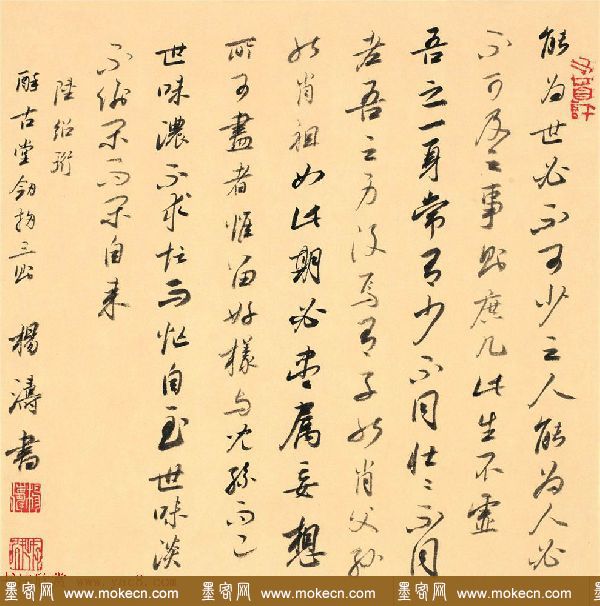 能为世必不可少之人能为人必
不可及之事則庶几此生不虛
吾之一身常有少不同壮〻不同
老吾之身後焉有子能肖父孫
能肖祖如此期必盡属妄想
所可盡者惟留好樣与儿孫而已
世味濃不求忙而忙自至世味淡
不偷閑而閑自来
陸紹珩
醉古堂劍掃三則 楊濤書
墨客网 www.mokecn.com 墨客网 www.mokecn.com 墨客网 www.mokecn.com